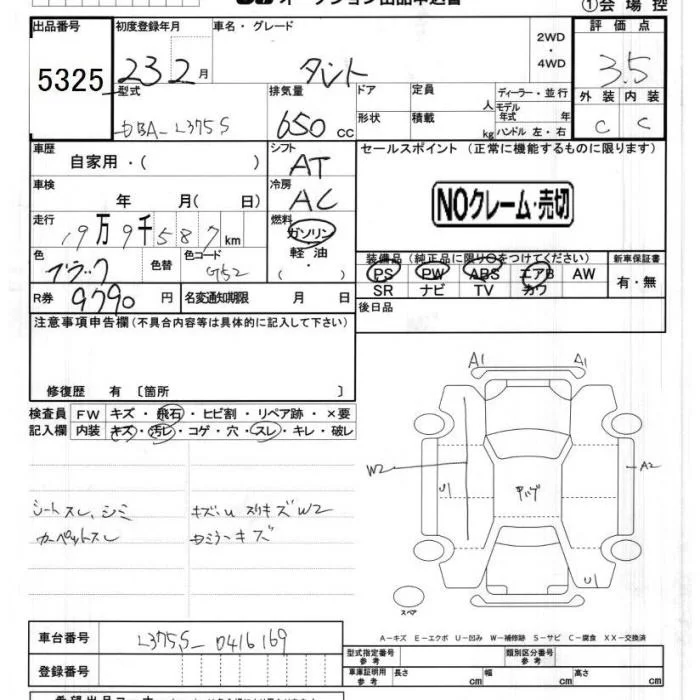 オークション出品申込書
①会場控
出品番号 初度登録年月 車名・グレード 評価点
5325 23 2月 タント 2WD・4WD 3.5
型式 排気量 ドア 定員 人 ディーラー・並行 外装 内装
DBA-L375S 650cc 形状 積載 kg モデル年式 年 ハンドル 左・右 C C
車歴 シフト セールスポイント (正常に機能するものに限ります)
自家用・( ) AT
車検 冷房
年 月( 日) AC NOクレーム・売切
走行 燃料
19万9千587km ガソリン
軽油
色 色替 色コード 装備品 (純正品に限り○をつけてください) 新車保証書
ブラック G52 PS PW ABS エアB AW 有・無
R券 9790円 名変通知期限 月 日 SR ナビ TV カワ
注意事項申告欄(不具合内容等は具体的に記入して下さい) 後日品
修復歴 有 〔箇所 〕
検査員 FW キズ・飛石・ヒビ割・リペア跡・×要
記入欄 内装 キズ・汚レ・コゲ・穴・スレ・キレ・破レ
A1 A1
W2 U1 A2
シートスレ、シミ キズ、U スリキズW2
カーペットスレ カミラーキズ
U1
スペア
A-キズ E-エクボ U-凹み W-補修跡 S-サビ C-腐食 XX-交換済
車台番号 L375S-0416169
型式指定番号 参考 類別区分番号 参考
登録番号 車庫証明用 参考 長さ cm 幅 cm 高さ cm
希望出品コーナー